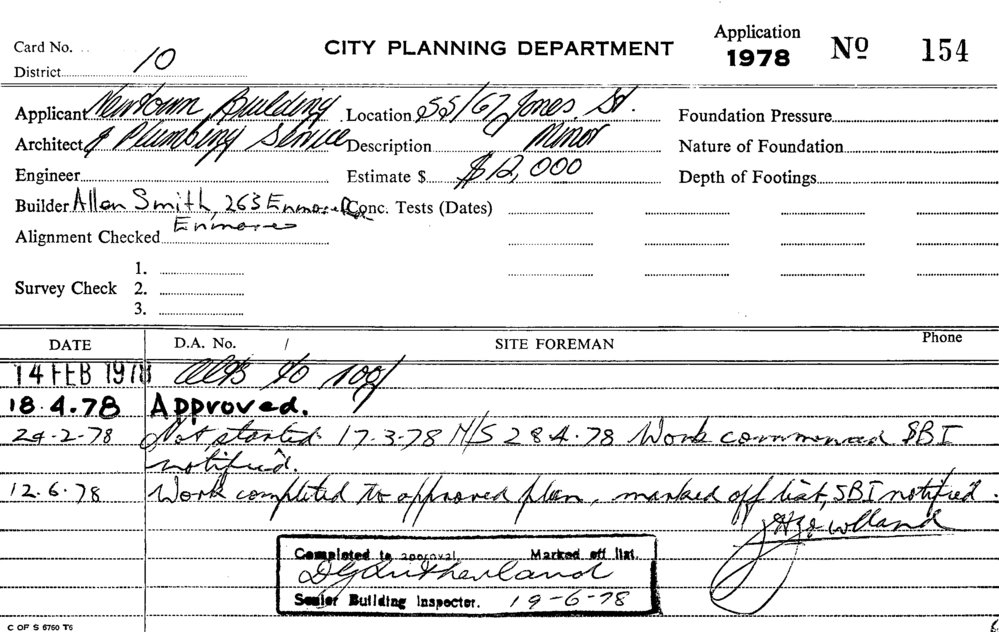 Card No.
CITY PLANNING DEPARTMENT
Application
1978 No 154
District 10
Applicant Newtown Building Location 55/67 Jones St. Foundation Pressure
Architect & Plumbing Service Description Minor Nature of Foundation
Engineer Estimate $ $12,000 Depth of Footings
Builder Allen Smith, 263 Enmore Rd Conc. Tests (Dates)
Enmore
Alignment Checked
1.
Survey Check 2.
3.
DATE D.A. No. / SITE FOREMAN Phone
14 FEB 1978 Alts to roof
18.4.78 Approved.
24-2-78 Not started 17-3-78 N/S 28.4.78 Work commenced SBI
notified.
12.6.78 Work completed to approved plan, marked off list, SBI notified.
Completed to approval. Marked off list.
D G Sutherland
Senior Building Inspecter. 19-6-78
C OF S 6760 T6